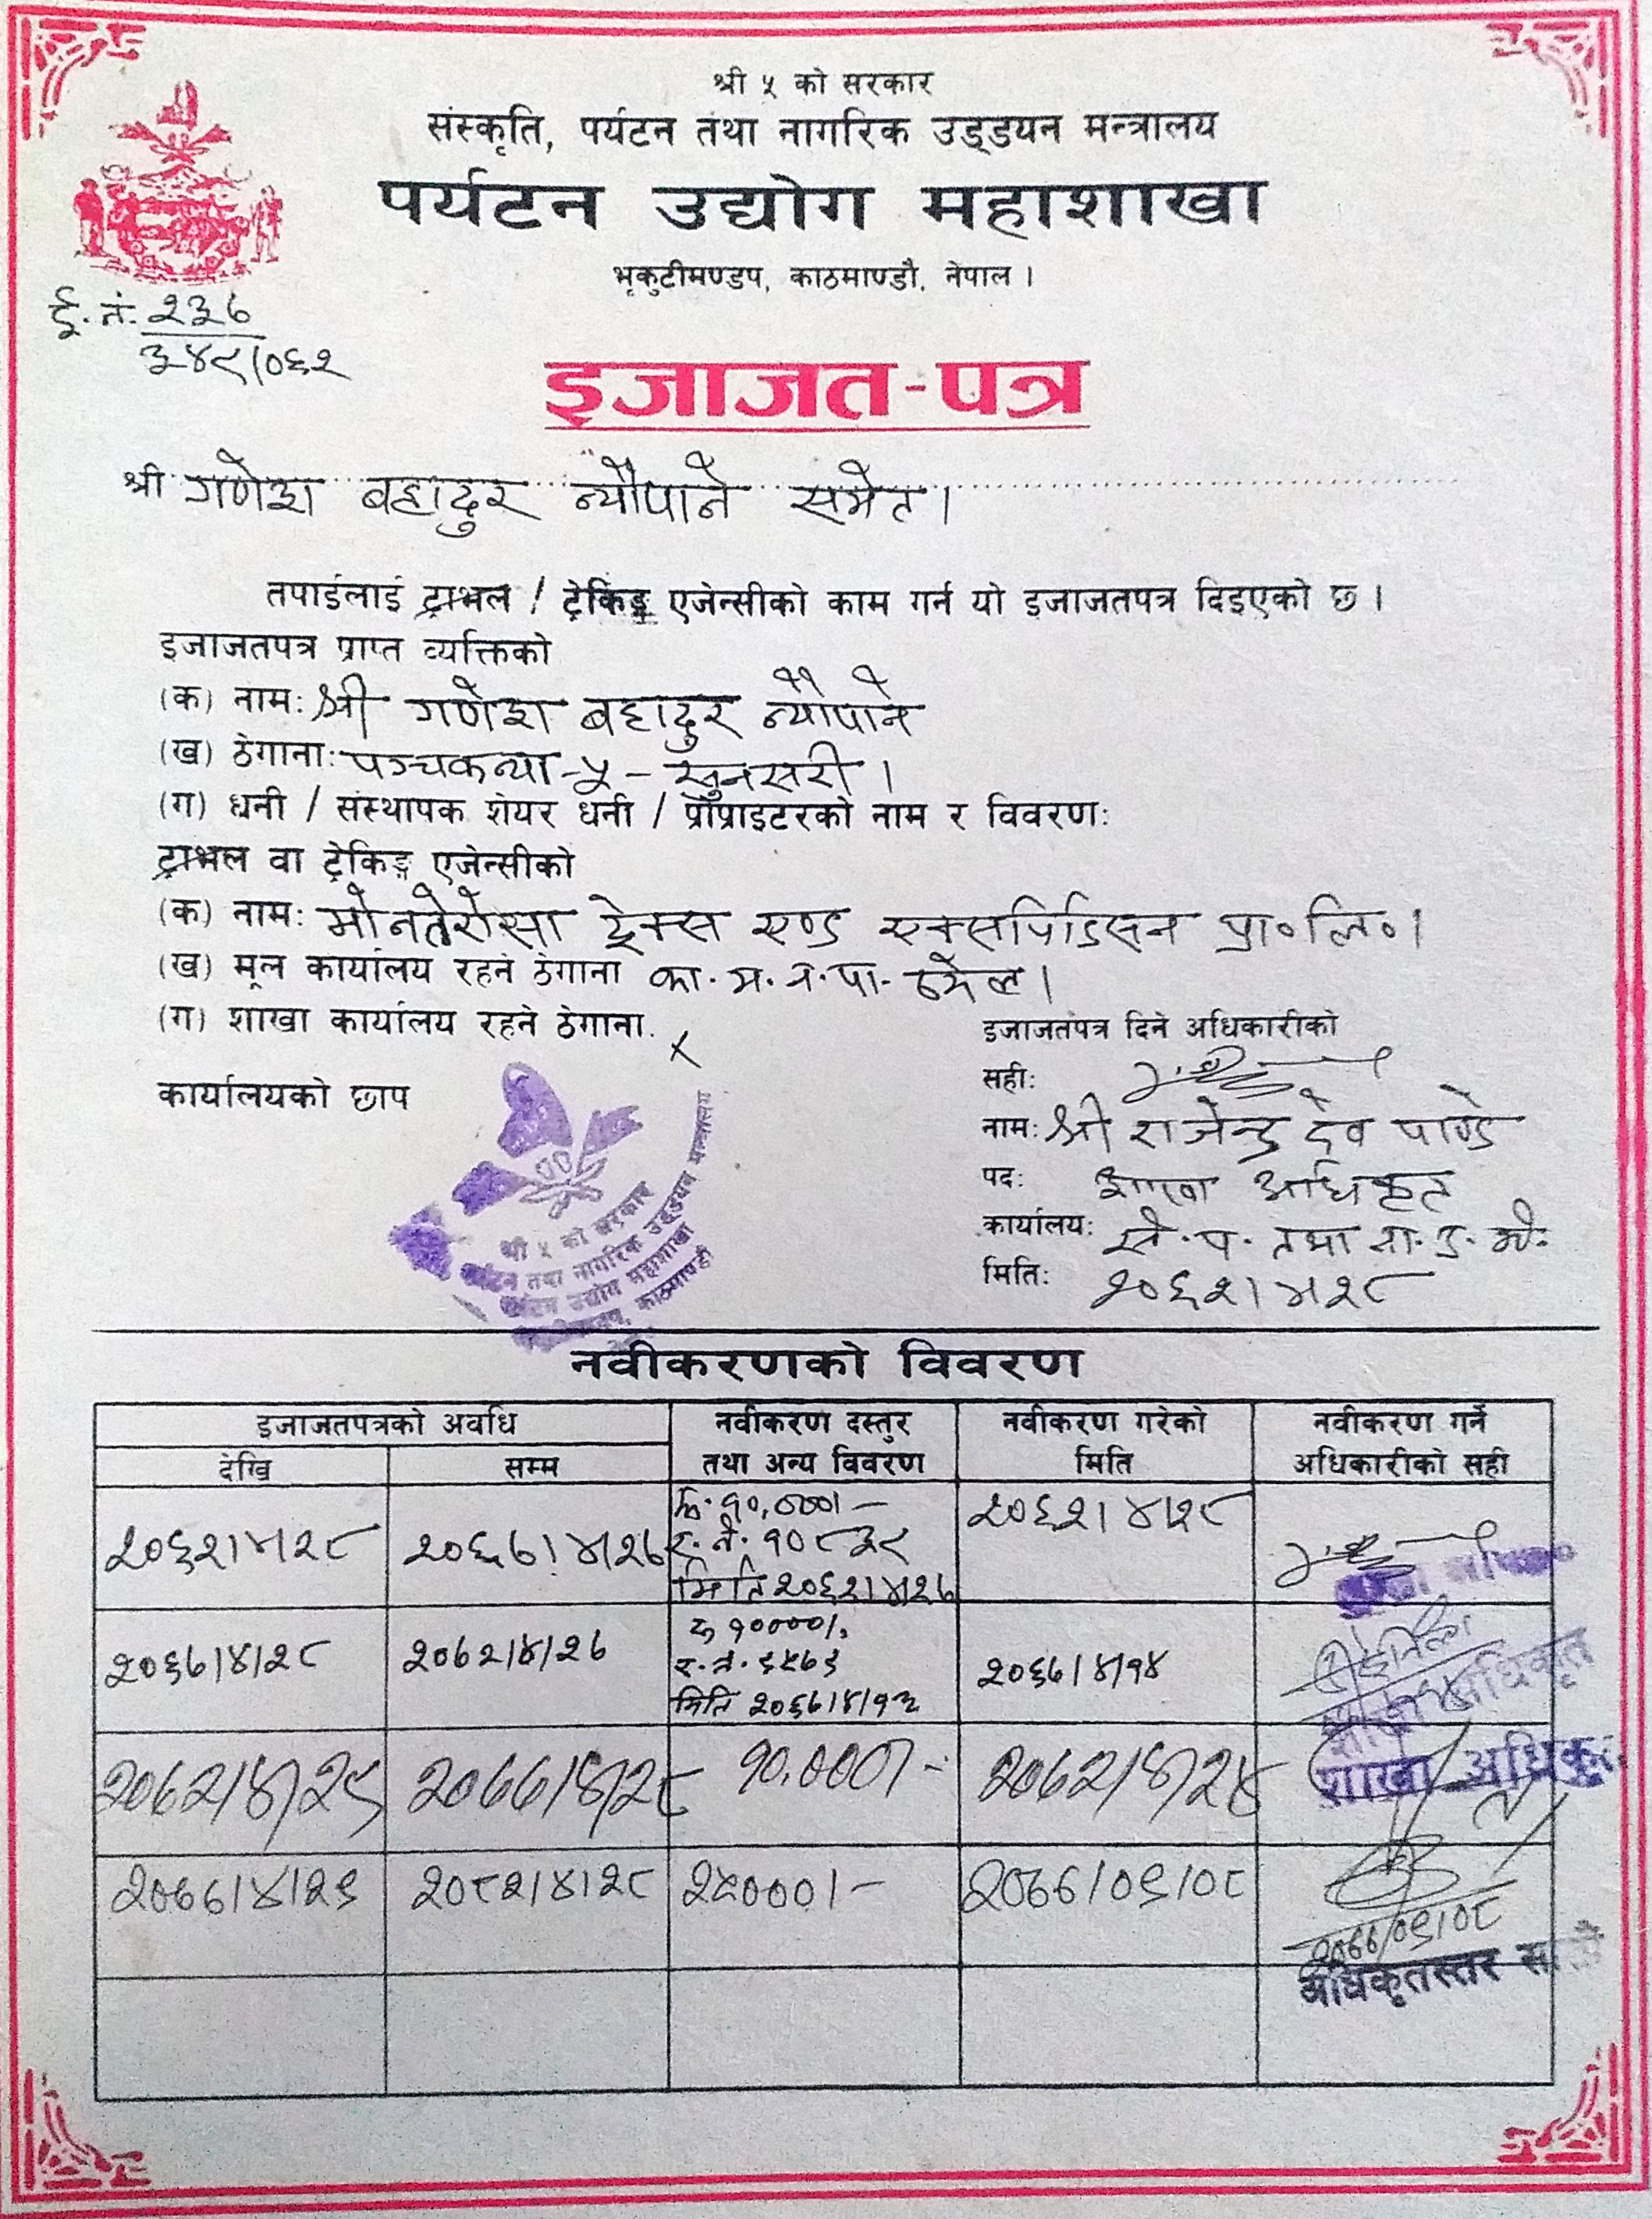 श्री ५ को सरकार
संस्कृति, पर्यटन तथा नागरिक उड्डयन मन्त्रालय
पर्यटन उद्योग महाशाखा
भृकुटीमण्डप, काठमाण्डौ, नेपाल ।
ई. नं. २३७
३४९/०६२
इजाजत-पत्र
श्री गणेश बहादुर न्यौपाने समेत।
तपाईलाई ट्राभल / ट्रेकिङ्ग एजेन्सीको काम गर्न यो इजाजतपत्र दिइएको छ ।
इजाजतपत्र प्राप्त व्यक्तिको
(क) नामः श्री गणेश बहादुर न्यौपाने
(ख) ठेगानाः पञ्चकन्या-५- सुनसरी ।
(ग) धनी / संस्थापक शेयर धनी / प्रोप्राइटरको नाम र विवरणः
ट्राभल वा ट्रेकिङ्ग एजेन्सीको
(क) नामः मोनतेरोसा ट्रेक्स एण्ड एक्सपिडिसन प्रा॰लि॰।
(ख) मूल कार्यालय रहने ठेगाना का. म. न. पा. ठमेल।
(ग) शाखा कार्यालय रहने ठेगाना. x
इजाजतपत्र दिने अधिकारीको
कार्यालयको छाप
सहीः
नामः श्री राजेन्द्र देव पाण्डे
पदः शाखा अधिकृत
कार्यालयः सं. प. तथा ना. उ. मं.
मितिः २०६२।४।२८
श्री ५ को सरकार
पर्यटन तथा नागरिक उड्डयन मन्त्रालय
पर्यटन उद्योग महाशाखा
काठमाण्डौ
नवीकरणको विवरण
इजाजतपत्रको अवधि
नवीकरण दस्तुर तथा अन्य विवरण
नवीकरण गरेको मिति
नवीकरण गर्ने अधिकारीको सही
देखि
सम्म
२०६२।४।२८ २०६७।४।२७ रु. १०,०००।- २०६२।४।२८
र. नं. १०८३९
मिति २०६२।४।२७
२०६७।४।२८ २०७२।४।२७ रु १००००।, २०६७।४।१४
र. नं. ६५७६
मिति २०६७।४।१३
शाखा अधिकृत
२०७२/४/२९ २०७७/४/२८ १०,०००/- २०७२/४/२४
शाखा अधिकृत
२०७७।४।२९ २०८२।४।२८ २५०००।- २०७७/०९/०८
२०७७/०९/०८
अधिकृतस्तर